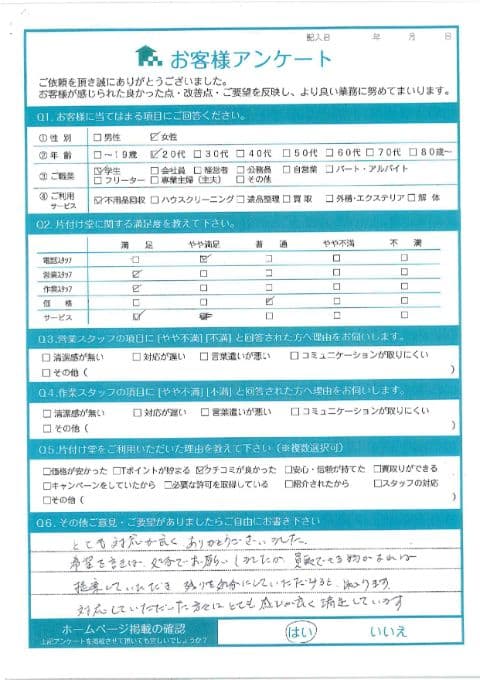 記入日 年 月 日
お客様アンケート
ご依頼を頂き誠にありがとうございました。
お客様が感じられた良かった点・改善点・ご要望を反映し、より良い業務に努めてまいります。
Q1. お客様に当てはまる項目にご回答ください。
①性別 □男性 ☑女性
②年齢 □~19歳 ☑20代 □30代 □40代 □50代 □60代 □70代 □80歳~
③ご職業 ☑学生 □会社員 □経営者 □公務員 □自営業 □パート・アルバイト
□フリーター □専業主婦(主夫) □その他
④ご利用サービス ☑不用品回収 □ハウスクリーニング □遺品整理 □買取 □外構・エクステリア □解体
Q2. 片付け堂に関する満足度を教えて下さい。
満足 やや満足 普通 やや不満 不満
電話スタッフ □ ☑ □ □ □
営業スタッフ ☑ □ □ □ □
作業スタッフ ☑ □ □ □ □
価格 □ □ ☑ □ □
サービス ☑ □ □ □
Q3. 営業スタッフの項目に[やや不満][不満]と回答された方へ理由をお伺いします。
□清潔感が無い □対応が遅い □言葉遣いが悪い □コミュニケーションが取りにくい
□その他(
Q4. 作業スタッフの項目に[やや不満][不満]と回答された方へ理由をお伺いします。
□清潔感が無い □対応が遅い □言葉遣いが悪い □コミュニケーションが取りにくい
□その他(
Q5. 片付け堂をご利用いただいた理由を教えて下さい(※複数選択可)
□価格が安かった □Tポイントが貯まる ☑クチコミが良かった □安心・信頼が持てた □買取りができる
□キャンペーンをしていたから □必要な許可を取得している □紹介されたから □スタッフの対応
□その他(
Q6. その他ご意見・ご要望がありましたらご自由にお書き下さい
とても対応が良くありがとうございました。
希望を言えば、処分でお願いしましたが、買取できる物があれば
提案していただき 残りを処分にしていただけると 助かります
対応していただいた方々にとても感じが良く満足しています
ホームページ掲載の確認
上記アンケートを掲載させて頂いても宜しいでしょうか?
はい いいえ